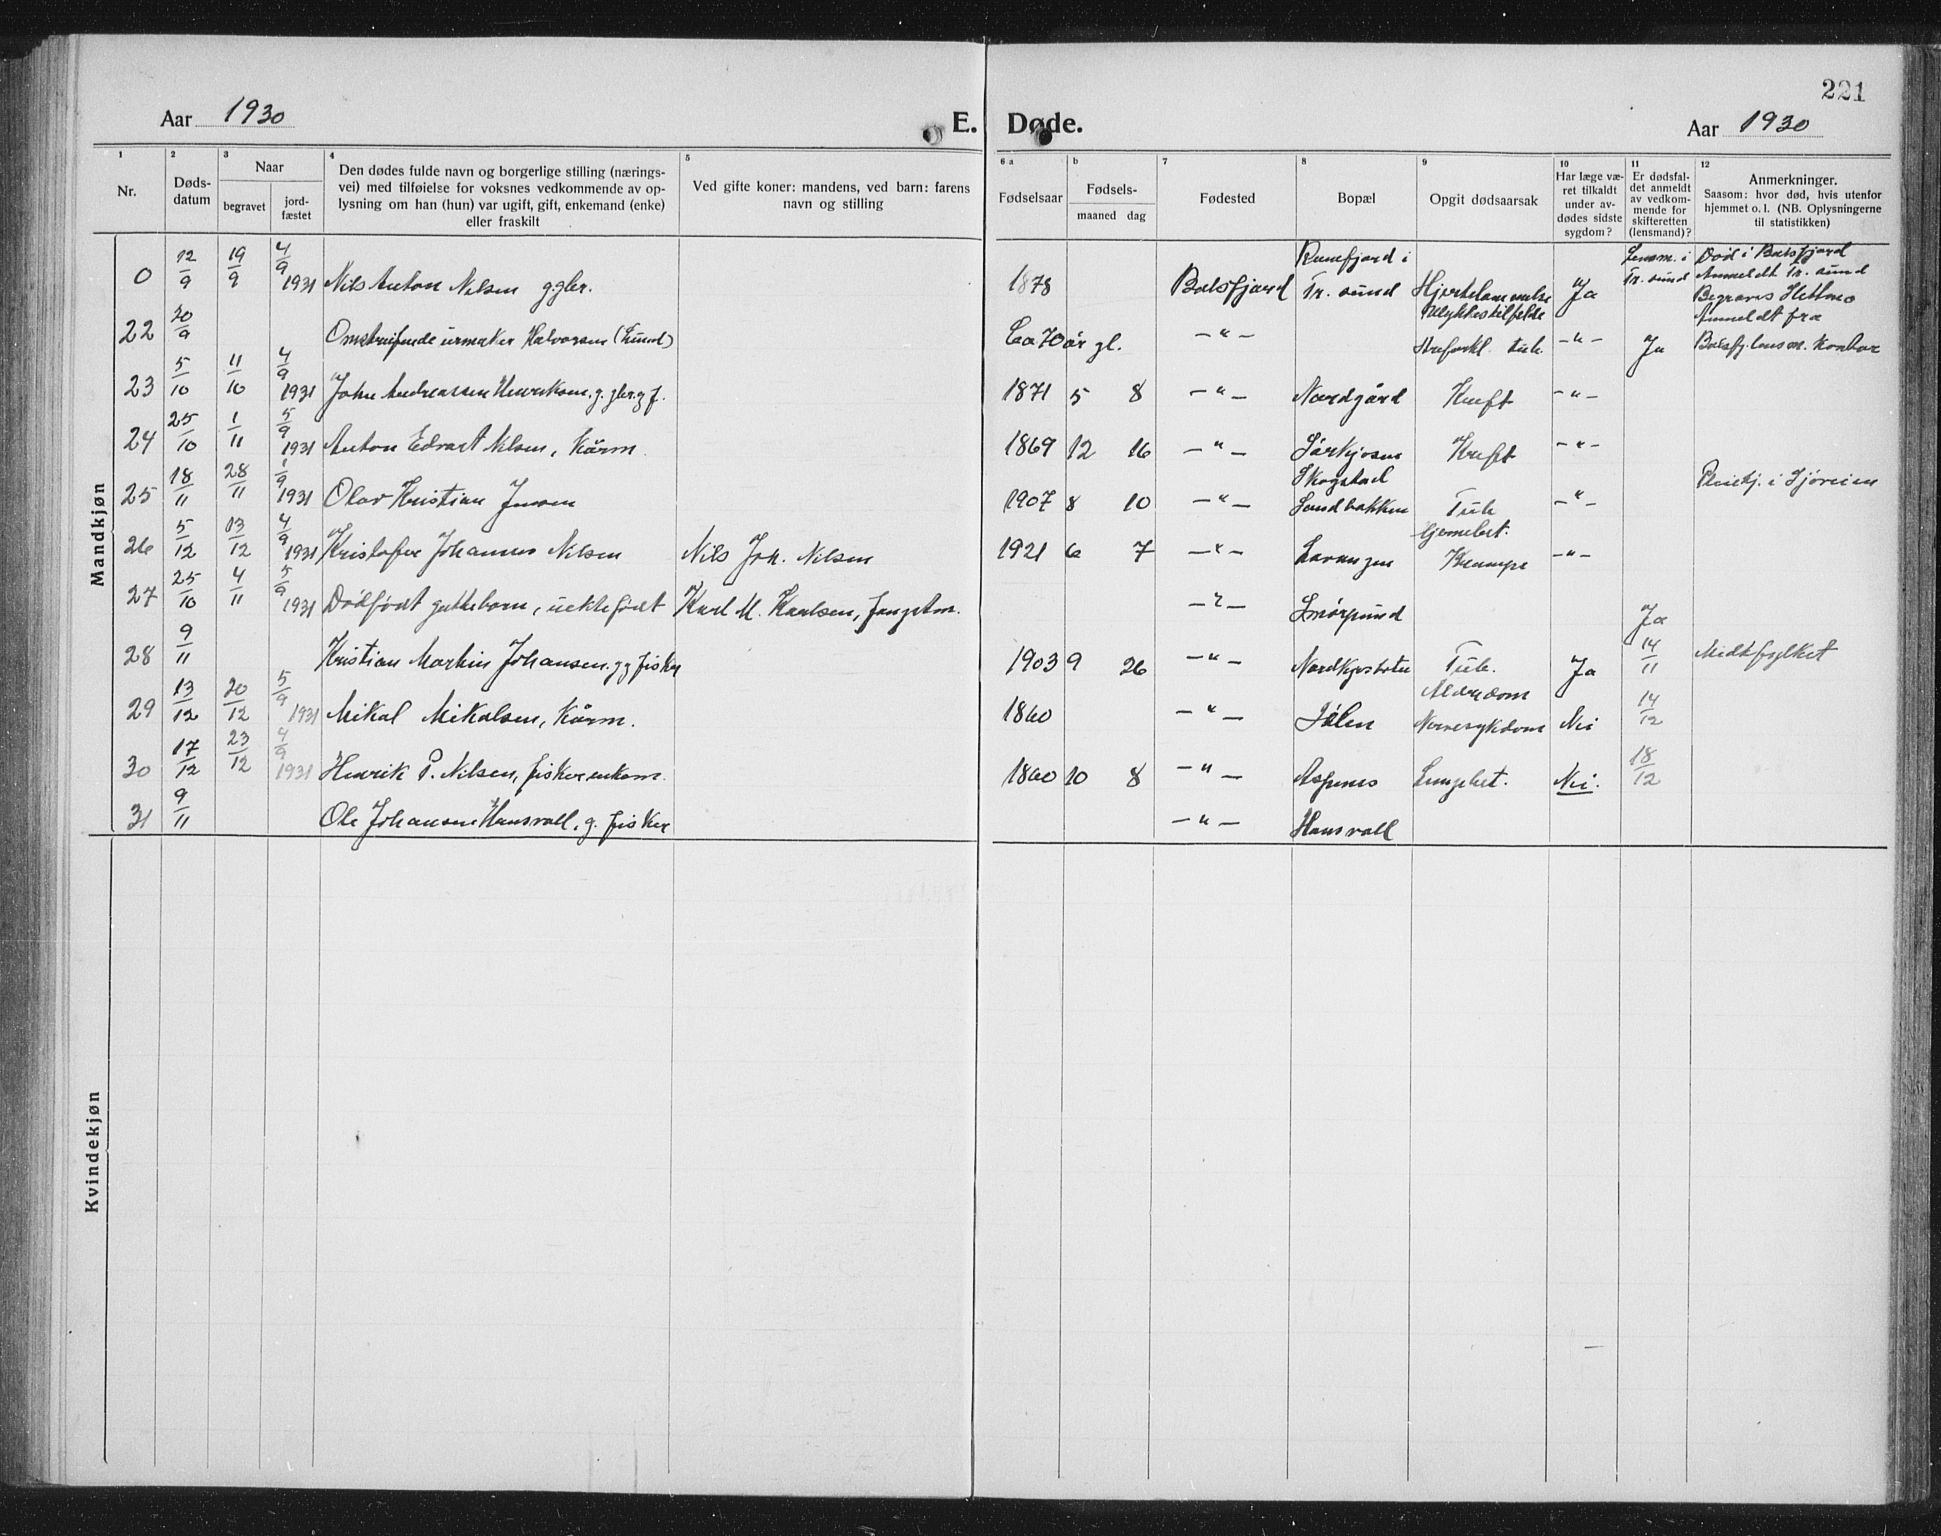 221
Aar 1930
E. Døde.
Aar 1930
1 2 3 4 5 6 a b 7 8 9 10 11 12
Nr.
Døds-
datum
Naar
begravet
jord-
fæstet
Den dødes fulde navn og borgerlige stilling (nærings-
vei) med tilføielse for voksnes vedkommende av op-
lysning om han (hun) var ugift, gift, enkemand (enke)
eller fraskilt
Ved gifte koner: mandens, ved barn: farens
navn og stilling
Fødselsaar
Fødsels-
maaned dag
Fødested
Bopæl
Opgit dødsaarsak
Har læge væ-
ret tilkaldt
under av-
dødes sidste
sygdom?
Er dødsfal-
det anmeldt
av vedkom-
mende for
skifteretten
(lensmand)?
Anmerkninger.
Saasom: hvor død, hvis utenfor
hjemmet o. l. (NB. Oplysningerne
til statistikken)
Mandkjøn
0 12/9 19/9 4/9 1931 Nils Anton Nilsen g.gbr. 1878 Balsfjord Ramfjord i Tr. sund Hjertelammelse Ja Lensm. i Tr. sund Død i Balsfjord Anmeldt Tr. sund Begraves
22 20/9 Omstreifende urmaker Halvorsen (Lund) Ca 70 år gl. -"- Ulykkestilfelde -"- Ja Anmeldt fra Balsfj. lensm. kontor
23 5/10 11/10 4/9 1931 John Andreassen Henriksen, g. gbr. g f. 1871 5 8 -"- Nordgård Kreft -"-
24 25/10 1/11 5/9 1931 Anton Edvart Nilsen, Kårm. 1869 12 16 -"- Sørkjosen Kreft -"-
25 18/11 28/11 1/9 1931 Olav Kristian Jensen 1907 8 10 -"- Skogstad Sandbakken Tub. -"- Pleiehj. i Sjøreien
26 5/12 13/12 4/9 1931 Kristofer Johannes Nilsen Nils Joh. Nilsen 1921 6 7 -"- Lavangen Hjernebet. Krampe -"-
27 25/10 4/11 5/9 1931 Dødfødt guttebarn, uektefødt Karl M. Karlsen, fangstm. -"- Smørsund Ja
28 9/11 Kristian Martin Johansen, g g fisker 1903 9 26 -"- Nordkjosbotn Tub. Ja 14/11 Midtfylket
29 13/12 20/12 5/9 1931 Mikal Mikalsen, Kårm. 1860 -"- Sølen Alderdom Nervesykdom Nei 14/12
30 17/12 23/12 4/9 1931 Henrik P. Nilsen, fisker enkem. 1860 10 8 -"- Aspenes Lungebet. Nei. 18/12
31 9/11 Ole Johansen Hansvoll, g. fisker -"- Hansvoll
Kvindekjøn